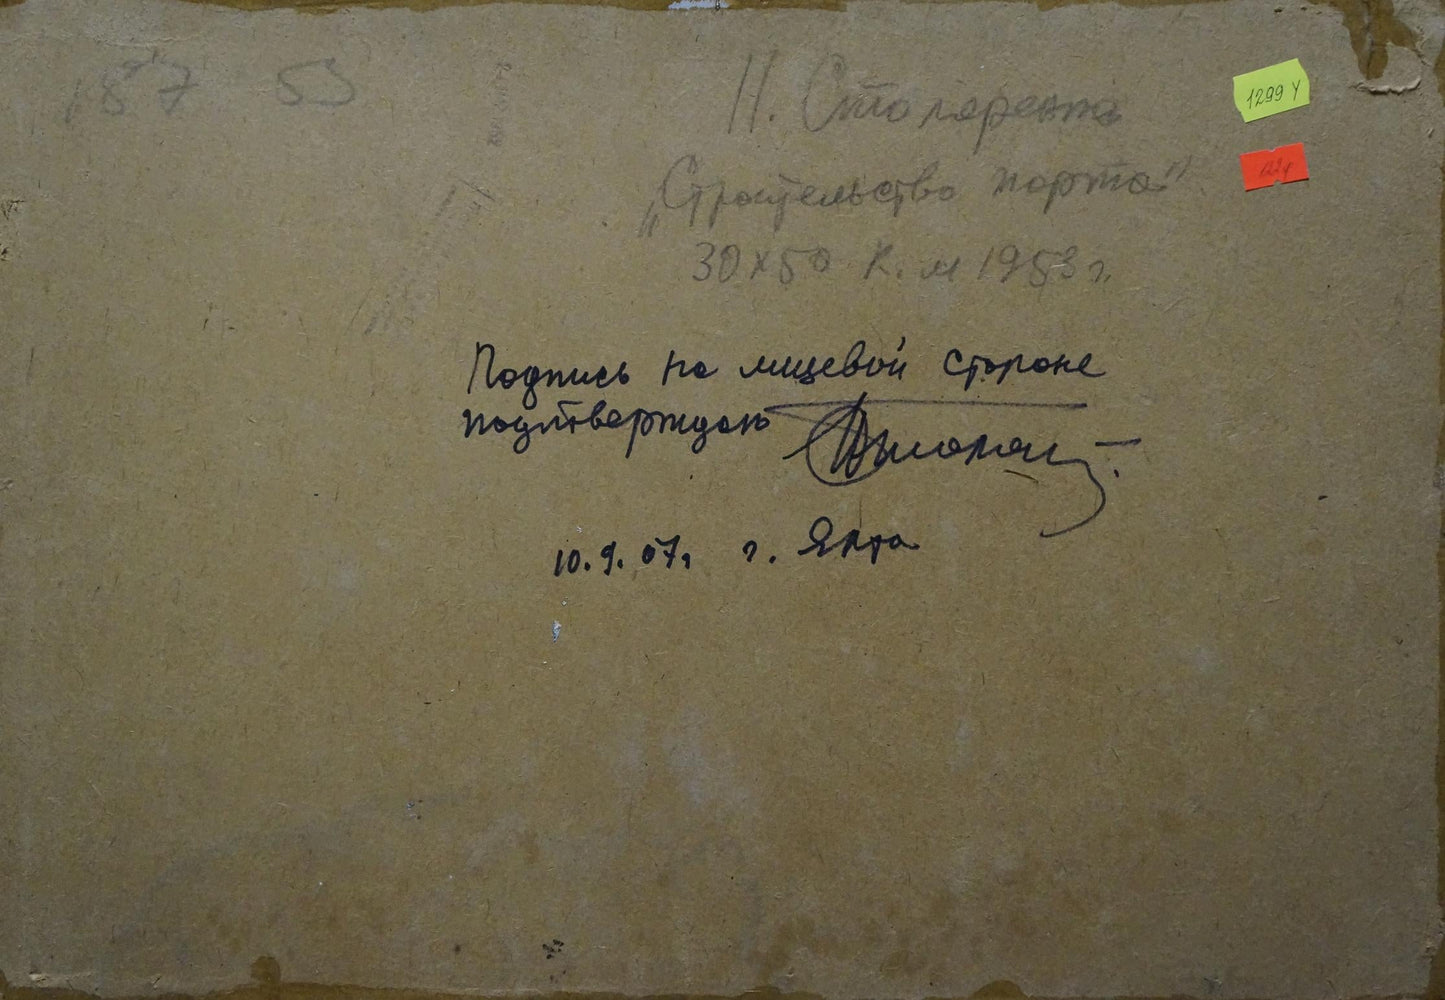 187 53
Н. Столяренко
„Строительство порта"
30х50 к.м 1953 г.
1299 Y
Подпись на лицевой стороне
подтверждаю
10.9.07, г. Ялта